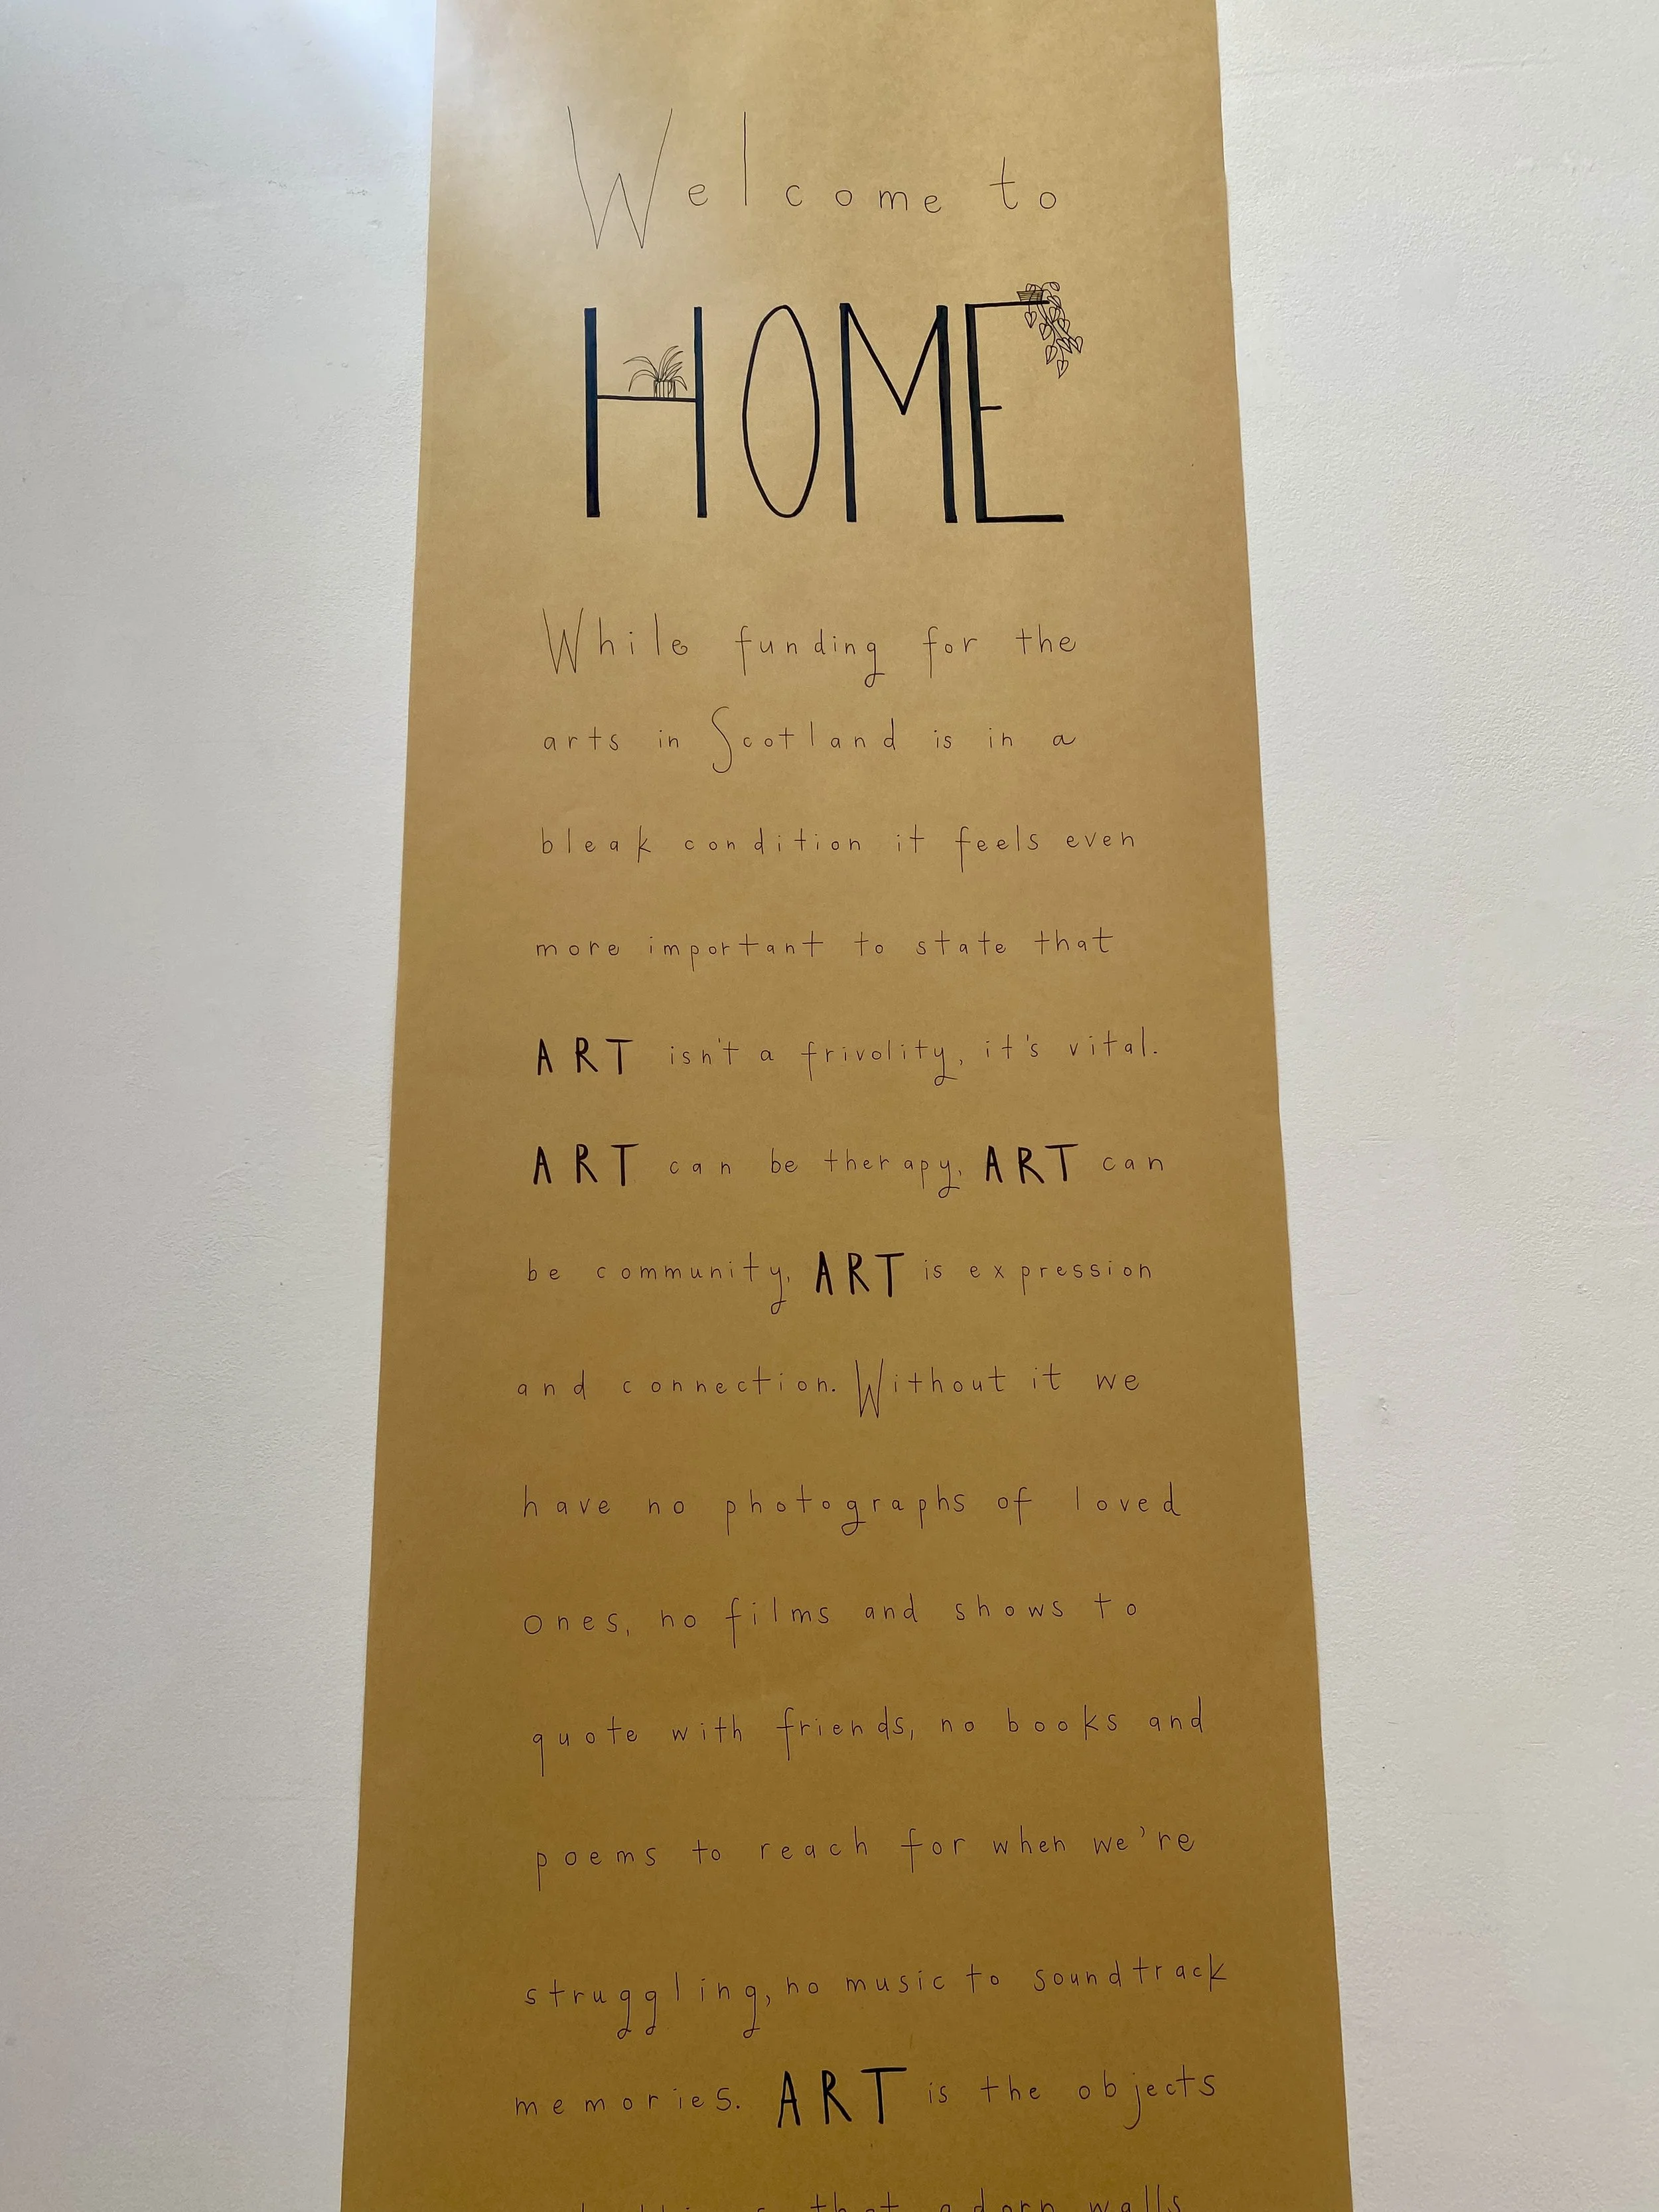 Welcome to
HOME
While funding for the
arts in Scotland is in a
bleak condition it feels even
more important to state that
ART isn't a frivolity, it's vital.
ART can be therapy, ART can
be community, ART is expression
and connection. Without it we
have no photographs of loved
ones, no films and shows to
quote with friends, no books and
poems to reach for when we're
struggling, no music to soundtrack
memories. ART is the objects
that adorn walls